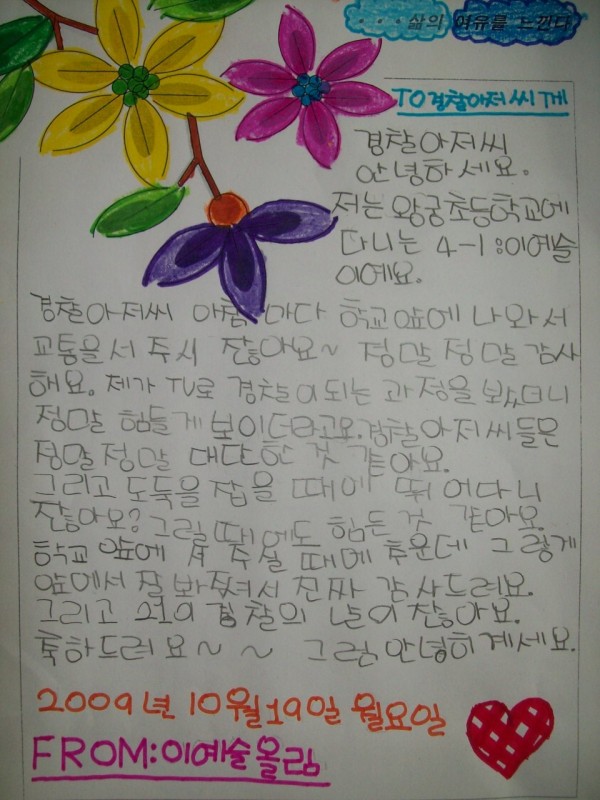 ...삶의 여유를 느낀다
TO경찰아저씨께
경찰아저씨
안녕하세요.
저는 왕궁초등학교에
다니는 4-1:이예슬
이에요.
경찰아저씨 아침 마다 학교앞에 나와서
교통을서 주시 잖아요~ 정말정말감사
해요. 제가 TV로 경찰이되는 과정을 봤더니
정말 힘들게 보이더라고요.경찰아저씨들은
정말정말 대단한 것 같아요.
그리고 도둑을 잡을 때에 뛰어다니
잖아요? 그럴때에도 힘든 것 같아요.
학교 앞에 서 주실 때에 추운데 그렇게
앞에서 잘 봐줘서 진짜 감사드려요.
그리고 경찰의 날이 잖아요.
축하드려요~ ~ 그럼안녕히계세요.
2009년 10월19일 월요일
FROM:이예슬올림